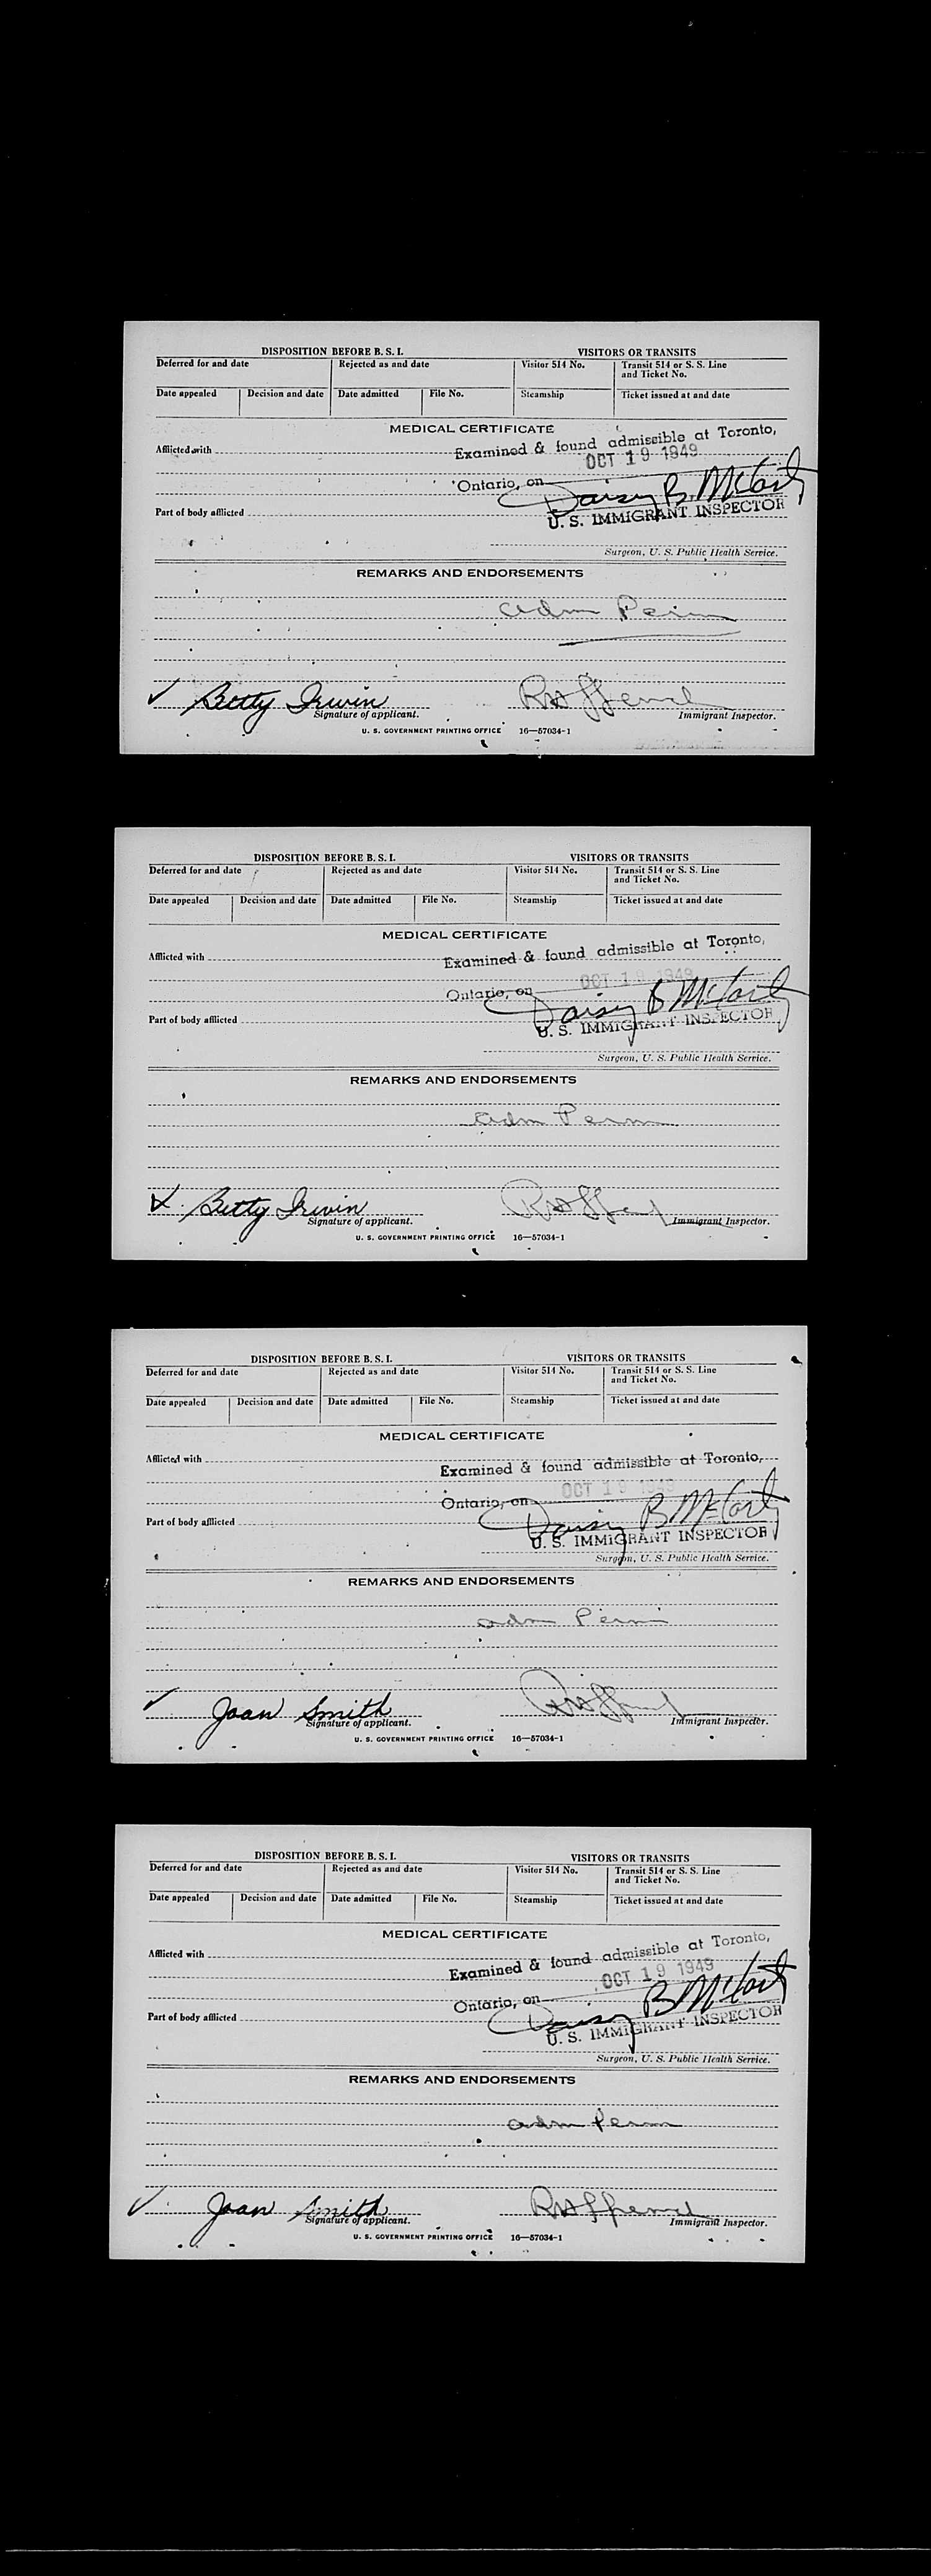 DISPOSITION BEFORE B. S. I. VISITORS OR TRANSITS
Deferred for and date Rejected as and date Visitor 514 No. Transit 514 or S. S. Line
and Ticket No.
Date appealed Decision and date Date admitted File No. Steamship Ticket issued at and date
MEDICAL CERTIFICATE
Afflicted with Examined & found admissible at Toronto,
OCT 19 1949
Ontario, on
Daisy B. McCarty
Part of body afflicted U. S. IMMIGRANT INSPECTOR
Surgeon, U. S. Public Health Service.
REMARKS AND ENDORSEMENTS
adm Perm
✓ Betty Irwin
Signature of applicant. Immigrant Inspector.
U. S. GOVERNMENT PRINTING OFFICE 16—57034-1
DISPOSITION BEFORE B. S. I. VISITORS OR TRANSITS
Deferred for and date Rejected as and date Visitor 514 No. Transit 514 or S. S. Line
and Ticket No.
Date appealed Decision and date Date admitted File No. Steamship Ticket issued at and date
MEDICAL CERTIFICATE
Afflicted with Examined & found admissible at Toronto,
OCT 19 1949
Ontario, on
Daisy B McCarty
Part of body afflicted U. S. IMMIGRANT INSPECTOR
Surgeon, U. S. Public Health Service.
REMARKS AND ENDORSEMENTS
adm Perm
Betty Irwin
Signature of applicant. Immigrant Inspector.
U. S. GOVERNMENT PRINTING OFFICE 16—57034-1
DISPOSITION BEFORE B. S. I. VISITORS OR TRANSITS
Deferred for and date Rejected as and date Visitor 514 No. Transit 514 or S. S. Line
and Ticket No.
Date appealed Decision and date Date admitted File No. Steamship Ticket issued at and date
MEDICAL CERTIFICATE
Afflicted with Examined & found admissible at Toronto,
OCT 19 1949
Ontario, on
Daisy B McCarty
Part of body afflicted U. S. IMMIGRANT INSPECTOR
Surgeon, U. S. Public Health Service.
REMARKS AND ENDORSEMENTS
adm Perm
✓ Joan Smith
Signature of applicant. Immigrant Inspector.
U. S. GOVERNMENT PRINTING OFFICE 16—57034-1
DISPOSITION BEFORE B. S. I. VISITORS OR TRANSITS
Deferred for and date Rejected as and date Visitor 514 No. Transit 514 or S. S. Line
and Ticket No.
Date appealed Decision and date Date admitted File No. Steamship Ticket issued at and date
MEDICAL CERTIFICATE
Afflicted with Examined & found admissible at Toronto,
OCT 19 1949
Ontario, on
Daisy B McCarty
Part of body afflicted U. S. IMMIGRANT INSPECTOR
Surgeon, U. S. Public Health Service.
REMARKS AND ENDORSEMENTS
adm Perm
✓ Joan Smith
Signature of applicant. Immigrant Inspector.
U. S. GOVERNMENT PRINTING OFFICE 16—57034-1